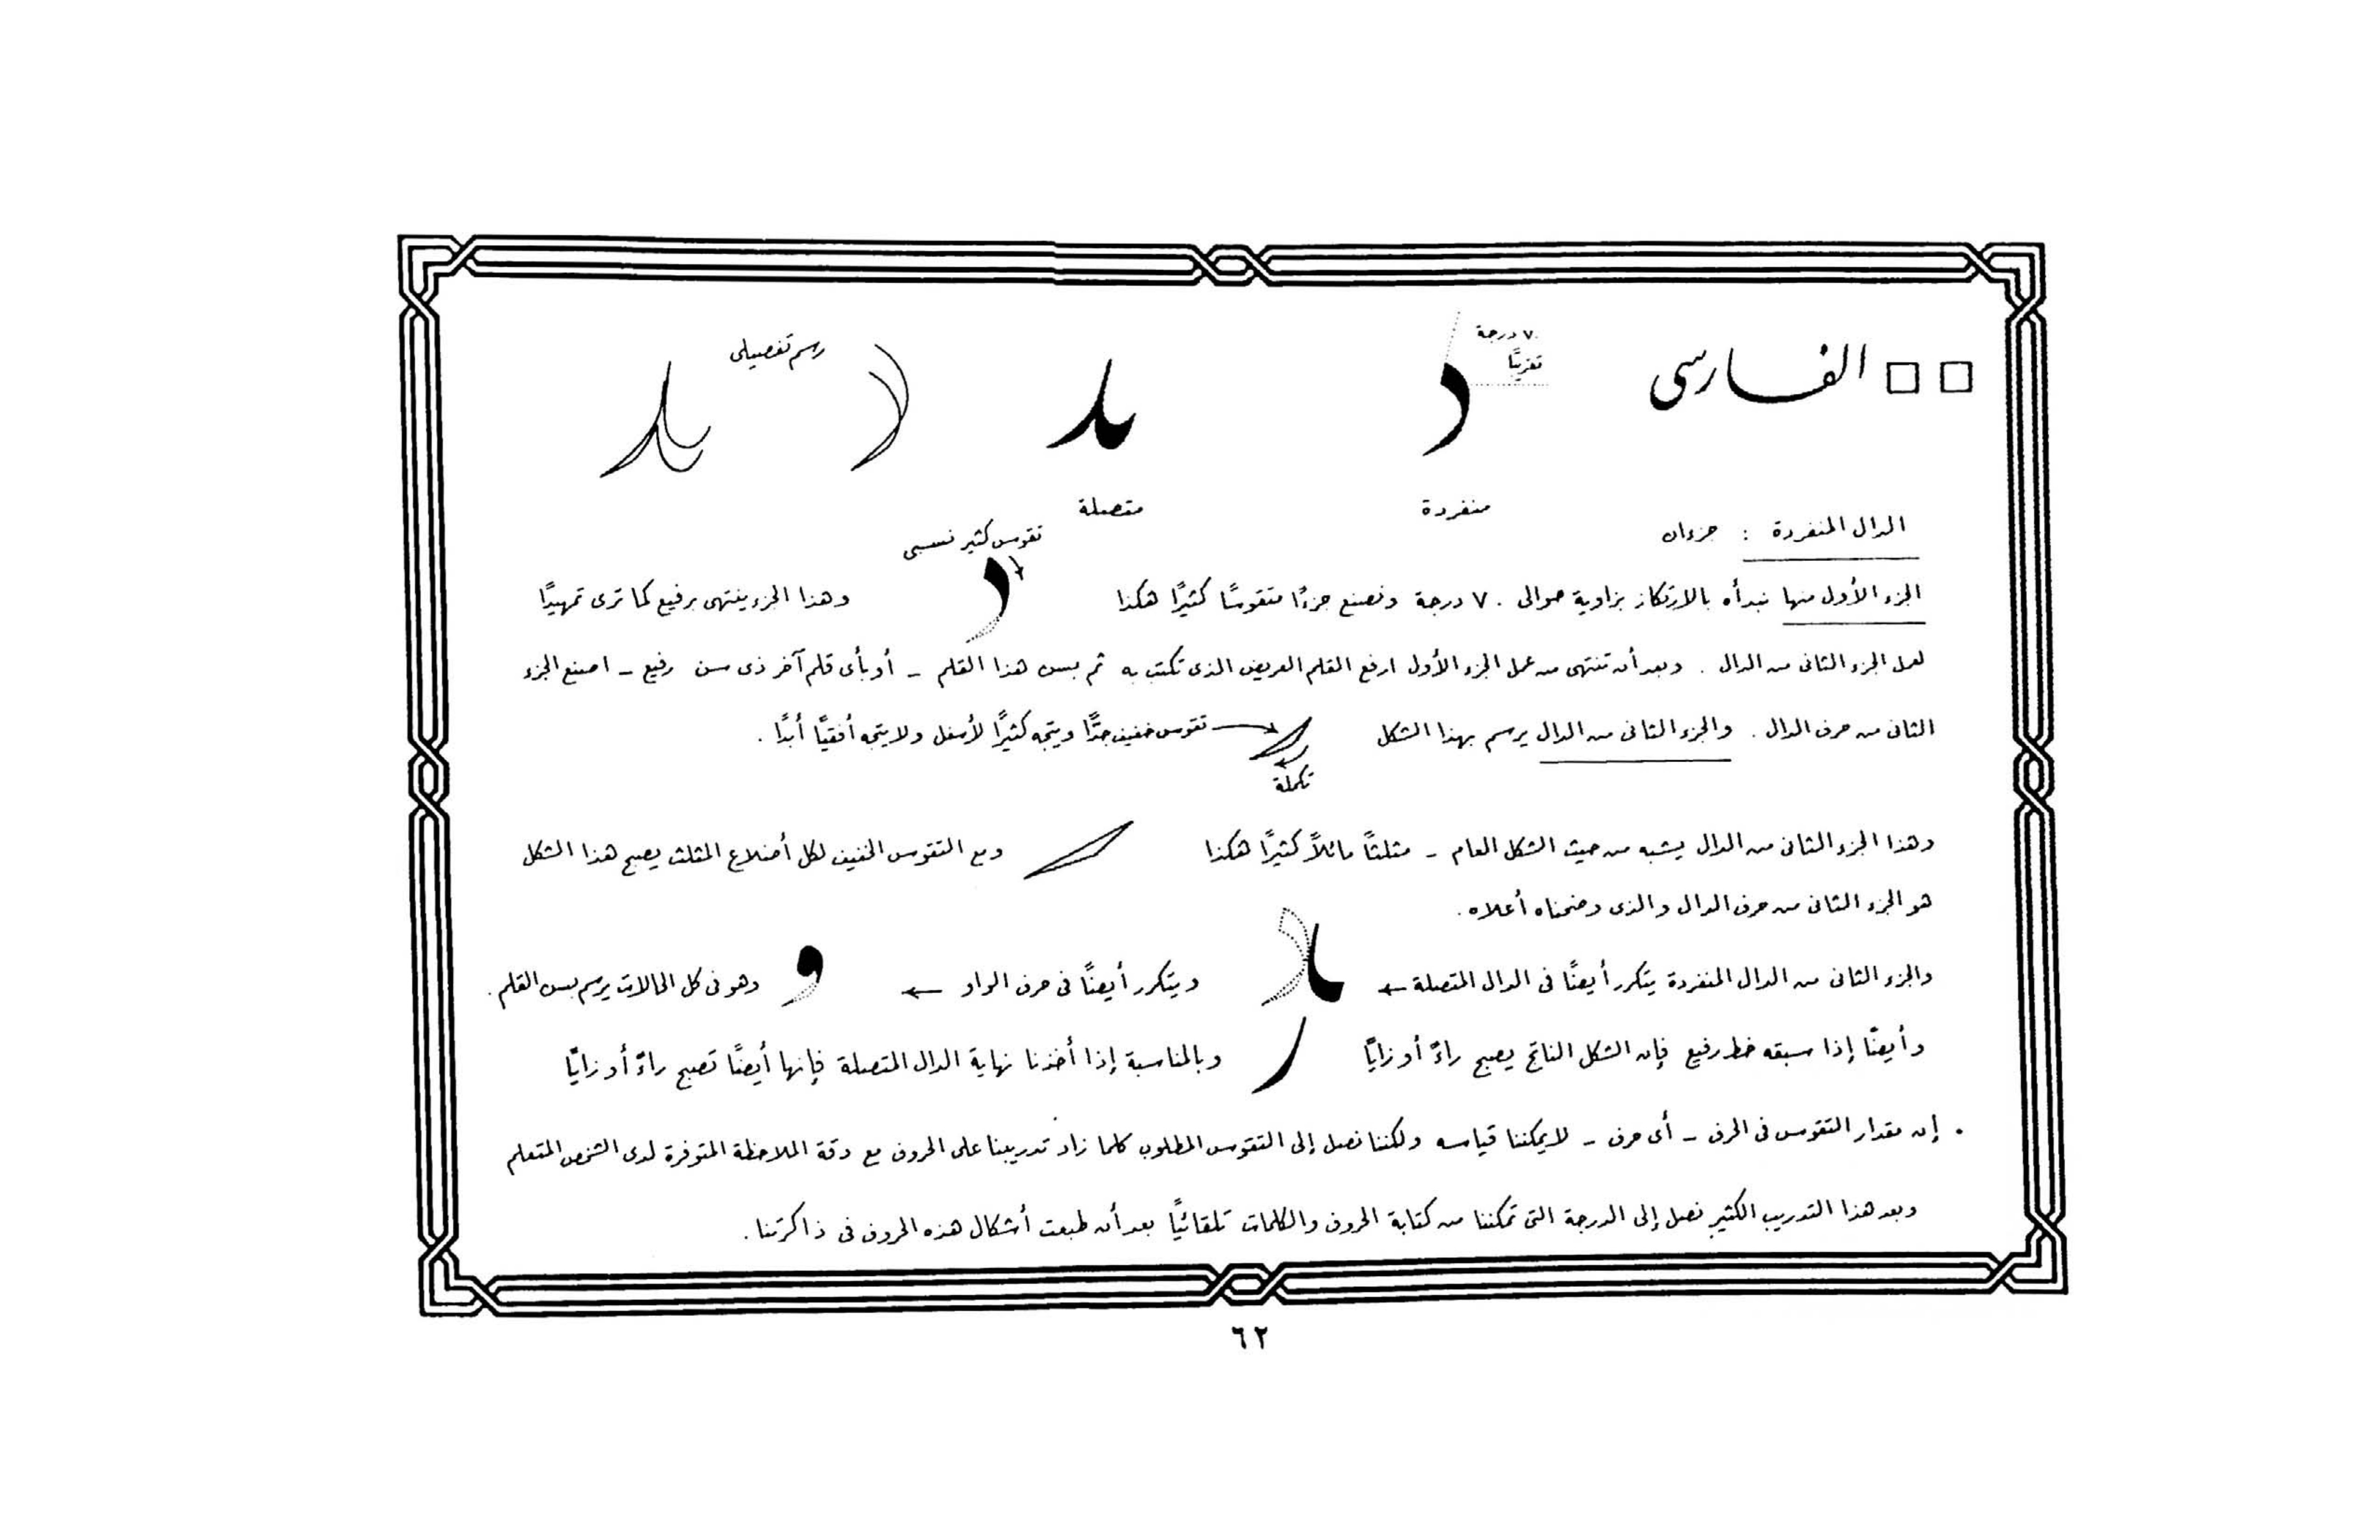 الفارسى
٧٠ درجة
تقريبًا
رسم تفصيلى
منفردة
متصلة
الدال المنفردة : جزءان
تقوس كثير نسبى
الجزء الأول منها نبدأه بالارتكاز بزاوية حوالى ٧٠ درجة ونصنع جزءًا متقوسًا كثيرًا هكذا وهذا الجزء ينتهى برفيع كما ترى تمهيدًا
لعمل الجزء الثانى من الدال . وبعد أن تنتهى من عمل الجزء الأول ارفع القلم العريض الذى تكتب به ثم بسن هذا القلم - أو بأى قلم آخر ذى سن رفيع - اصنع الجزء
الثانى من حرف الدال . والجزء الثانى من الدال يرسم بهذا الشكل تقوس خفيف جدًّا ويتجه كثيرًا لأسفل ولا يتجه أفقيًّا أبدًا .
تكملة
وهذا الجزء الثانى من الدال يشبه من حيث الشكل العام - مثلثًا مائلاً كثيرًا هكذا ومع التقوس الخفيف لكل أضلاع المثلث يصبح هذا الشكل
هو الجزء الثانى من حرف الدال والذى وضحناه أعلاه .
والجزء الثانى من الدال المنفردة يتكرر أيضًا فى الدال المتصلة ← ويتكرر أيضًا فى حرف الواو ← و وهو فى كل الحالات يرسم بسن القلم .
وأيضًا إذا سبقه خط رفيع فإن الشكل الناتج يصبح راءً أو زايًا ر وبالمناسبة إذا أخذنا نهاية الدال المتصلة فإنها أيضًا تصبح راءً أو زايًا
. إن مقدار التقوس فى الحرف - أى حرف - لا يمكننا قياسه ولكننا نصل إلى التقوس المطلوب كلما زاد تدريبنا على الحروف مع دقة الملاحظة المتوفرة لدى الشخص المتعلم
وبعد هذا التدريب الكثير نصل إلى الدرجة التى تمكننا من كتابة الحروف والكلمات تلقائيًا بعد أن طبعت أشكال هذه الحروف فى ذاكرتنا .
٦٢